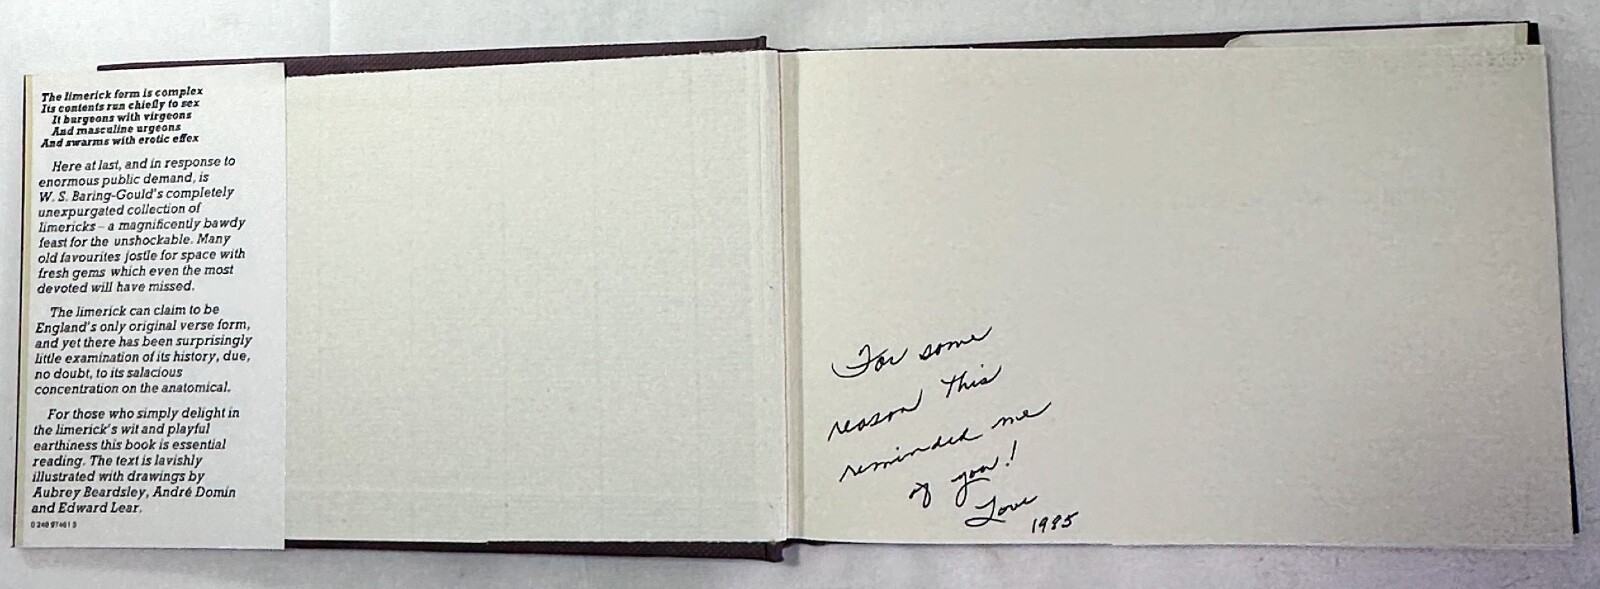 The limerick form is complex
Its contents run chiefly to sex
It burgeons with virgeons
And masculine urgeons
And swarms with erotic effex
Here at last, and in response to
enormous public demand, is
W. S. Baring-Gould's completely
unexpurgated collection of
limericks – a magnificently bawdy
feast for the unshockable. Many
old favourites jostle for space with
fresh gems which even the most
devoted will have missed.
The limerick can claim to be
England's only original verse form,
and yet there has been surprisingly
little examination of its history, due,
no doubt, to its salacious
concentration on the anatomical.
For those who simply delight in
the limerick's wit and playful
earthiness this book is essential
reading. The text is lavishly
illustrated with drawings by
Aubrey Beardsley, André Domin
and Edward Lear.
For some
reason this
reminded me
of you!
Love
1985